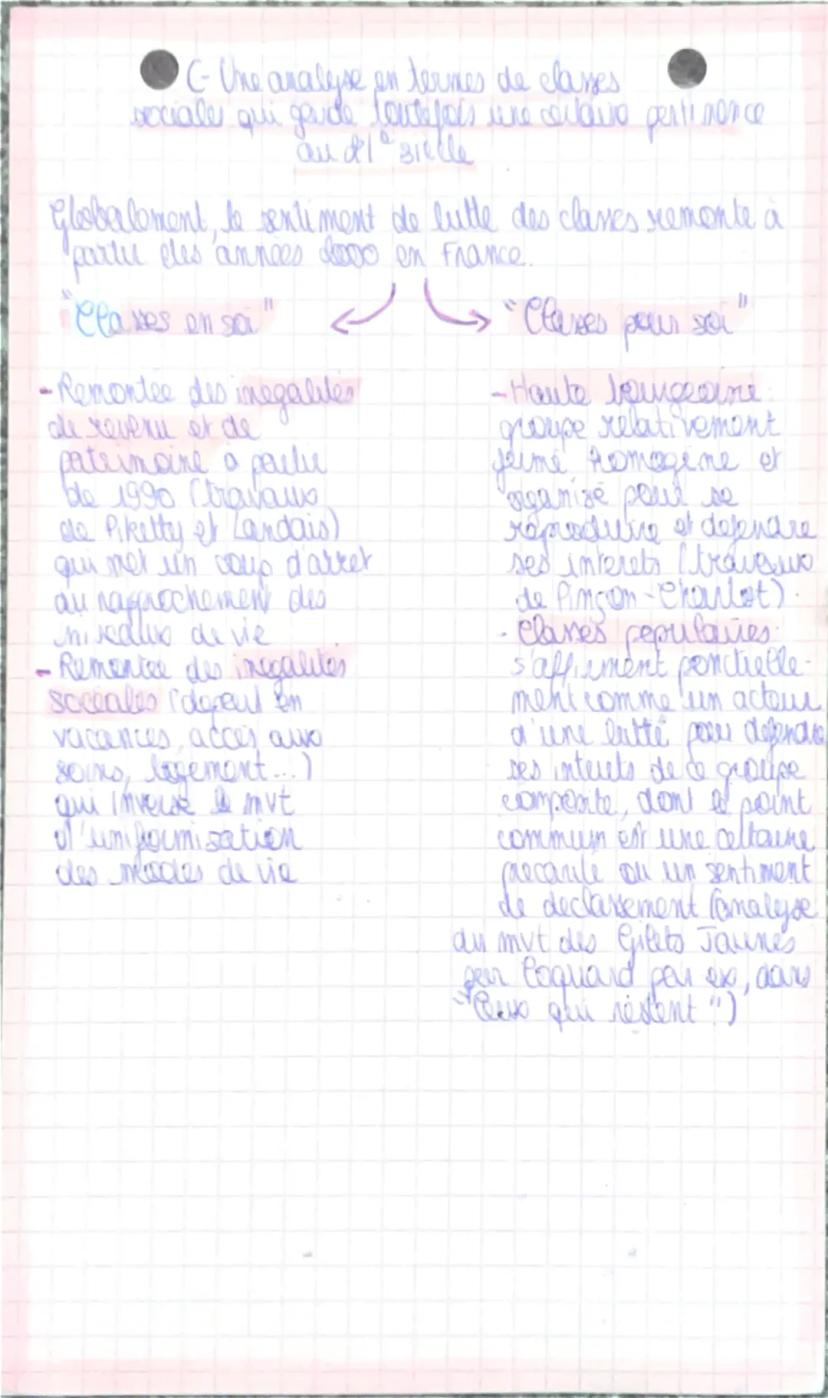 C- Une analyse en termes de classes
sociales qui garde toutefois une certaine pertinence
au 21e siècle
Globalement, le sentiment de lutte des classes remonte à
partir des années 2000 en France.
"Classes en soi"
- Remontée des inégalités
de revenu et de
patrimoine à partir
de 1990 (travaux
de Piketty et Landais)
qui met un coup d'arret
au rapprochement des
niveaux de vie
- Remontée des inégalités
sociales (depart en
vacances, accès aux
soins, logement...)
qui inverse le mvt
d'uniformisation
des modes de vie
"Classes pour soi"
- Haute bourgeoisie:
groupe relativement
fermé homogène et
organisé pour se
reproduire et defendre
ses interets (travaux
de Pinçon-Charlot).
- Classes populaires:
s'affirment ponctuelle-
ment comme un acteur
d'une lutte pour defendre
ses interets de ce groupe
composite, dont le point
commun est une certaine
precarité ou un sentiment
de declassement (analyse
du mvt des Gilets Jaunes
par Coquard par ex, dans
"Ceux qui restent")